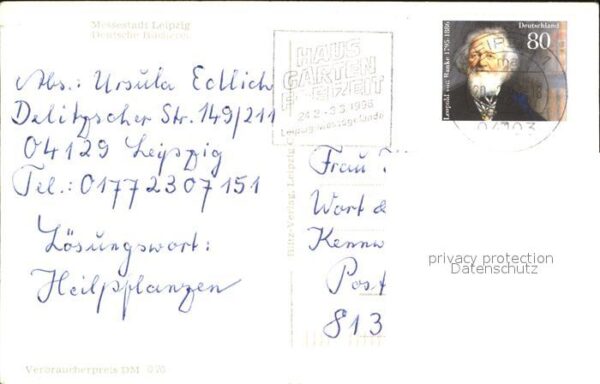 Messestadt Leipzig
Deutsche Bücherei
Abs.: Ursula Edlich
Delitzscher Str. 149/211
04129 Leipzig
Tel.: 01772307151
Lösungswort:
Heilpflanzen
Verbraucherpreis DM 0,20
HAUS
GARTEN
FREIZEIT
24.2.-3.3.1996
Leipzig Messegelände
Leopold von Ranke 1795-1886
Deutschland
80
04103
Frau
Wort &
Kennw
Post
813
privacy protection
Datenschutz